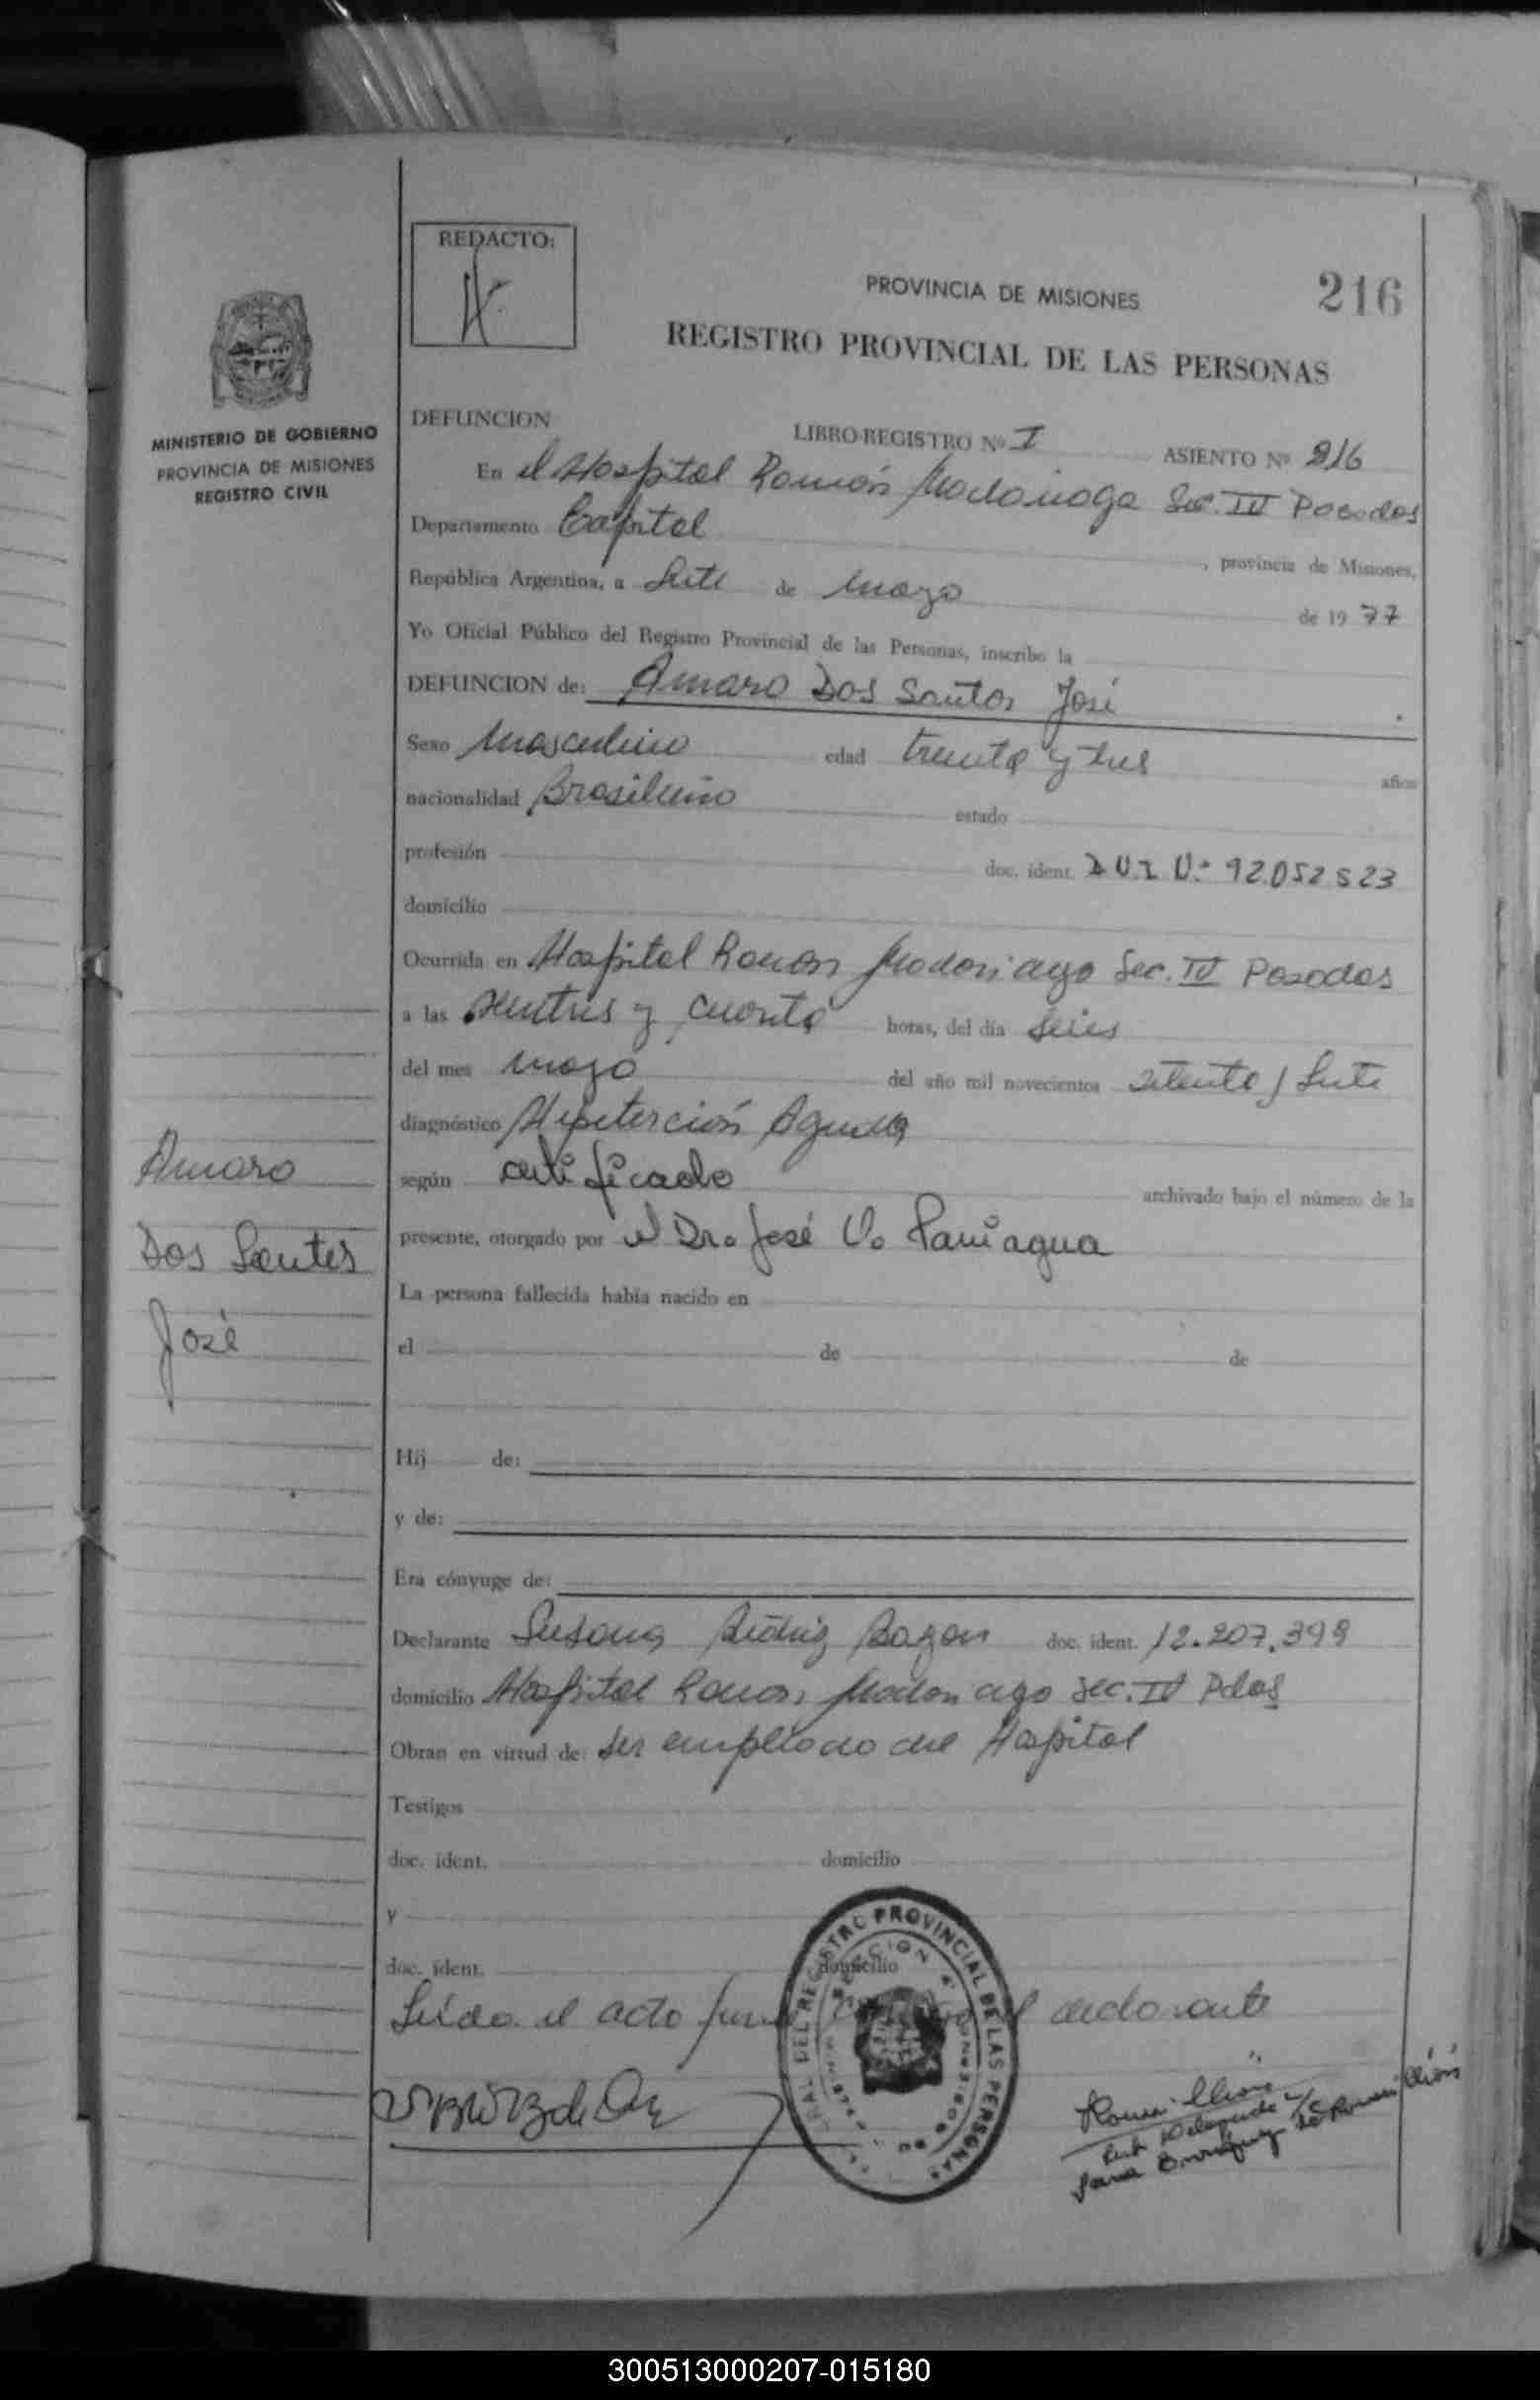 REDACTO:
PROVINCIA DE MISIONES
216
REGISTRO PROVINCIAL DE LAS PERSONAS
MINISTERIO DE GOBIERNO
PROVINCIA DE MISIONES
REGISTRO CIVIL
DEFUNCION
LIBRO-REGISTRO Nº I ASIENTO Nº 216
En el Hospital Ramón Madariaga Sec. IV Posadas
Departamento Capital, provincia de Misiones,
República Argentina, a Siete de mayo de 1977
Yo Oficial Público del Registro Provincial de las Personas, inscribo la
DEFUNCION de: Amaro Dos Santos José
Sexo Masculino edad treinta y tres años
nacionalidad Brasileño estado
profesión doc. ident. D.U.I Nº 92.052523
domicilio
Ocurrida en Hospital Ramón Madariaga Sec. IV Posadas
a las veintres y cuarenta horas, del día Seis
del mes mayo del año mil novecientos setenta y Siete
diagnóstico Aguda
según certificado archivado bajo el número de la
presente, otorgado por el Dr. José V. Paniagua
La persona fallecida había nacido en
el de de
Hij de:
y de:
Era cónyuge de:
Declarante Susana Bazan doc. ident. 12.207.398
domicilio Hospital Ramón Madariaga Sec. IV Pdas
Obran en virtud de: ser empleado del Hospital
Testigos
doc. ident. domicilio
y
doc. ident. domicilio
Leída el acta declarante
REGISTRO PROVINCIAL DE LAS PERSONAS
Amaro
Dos Santos
José
300513000207-015180